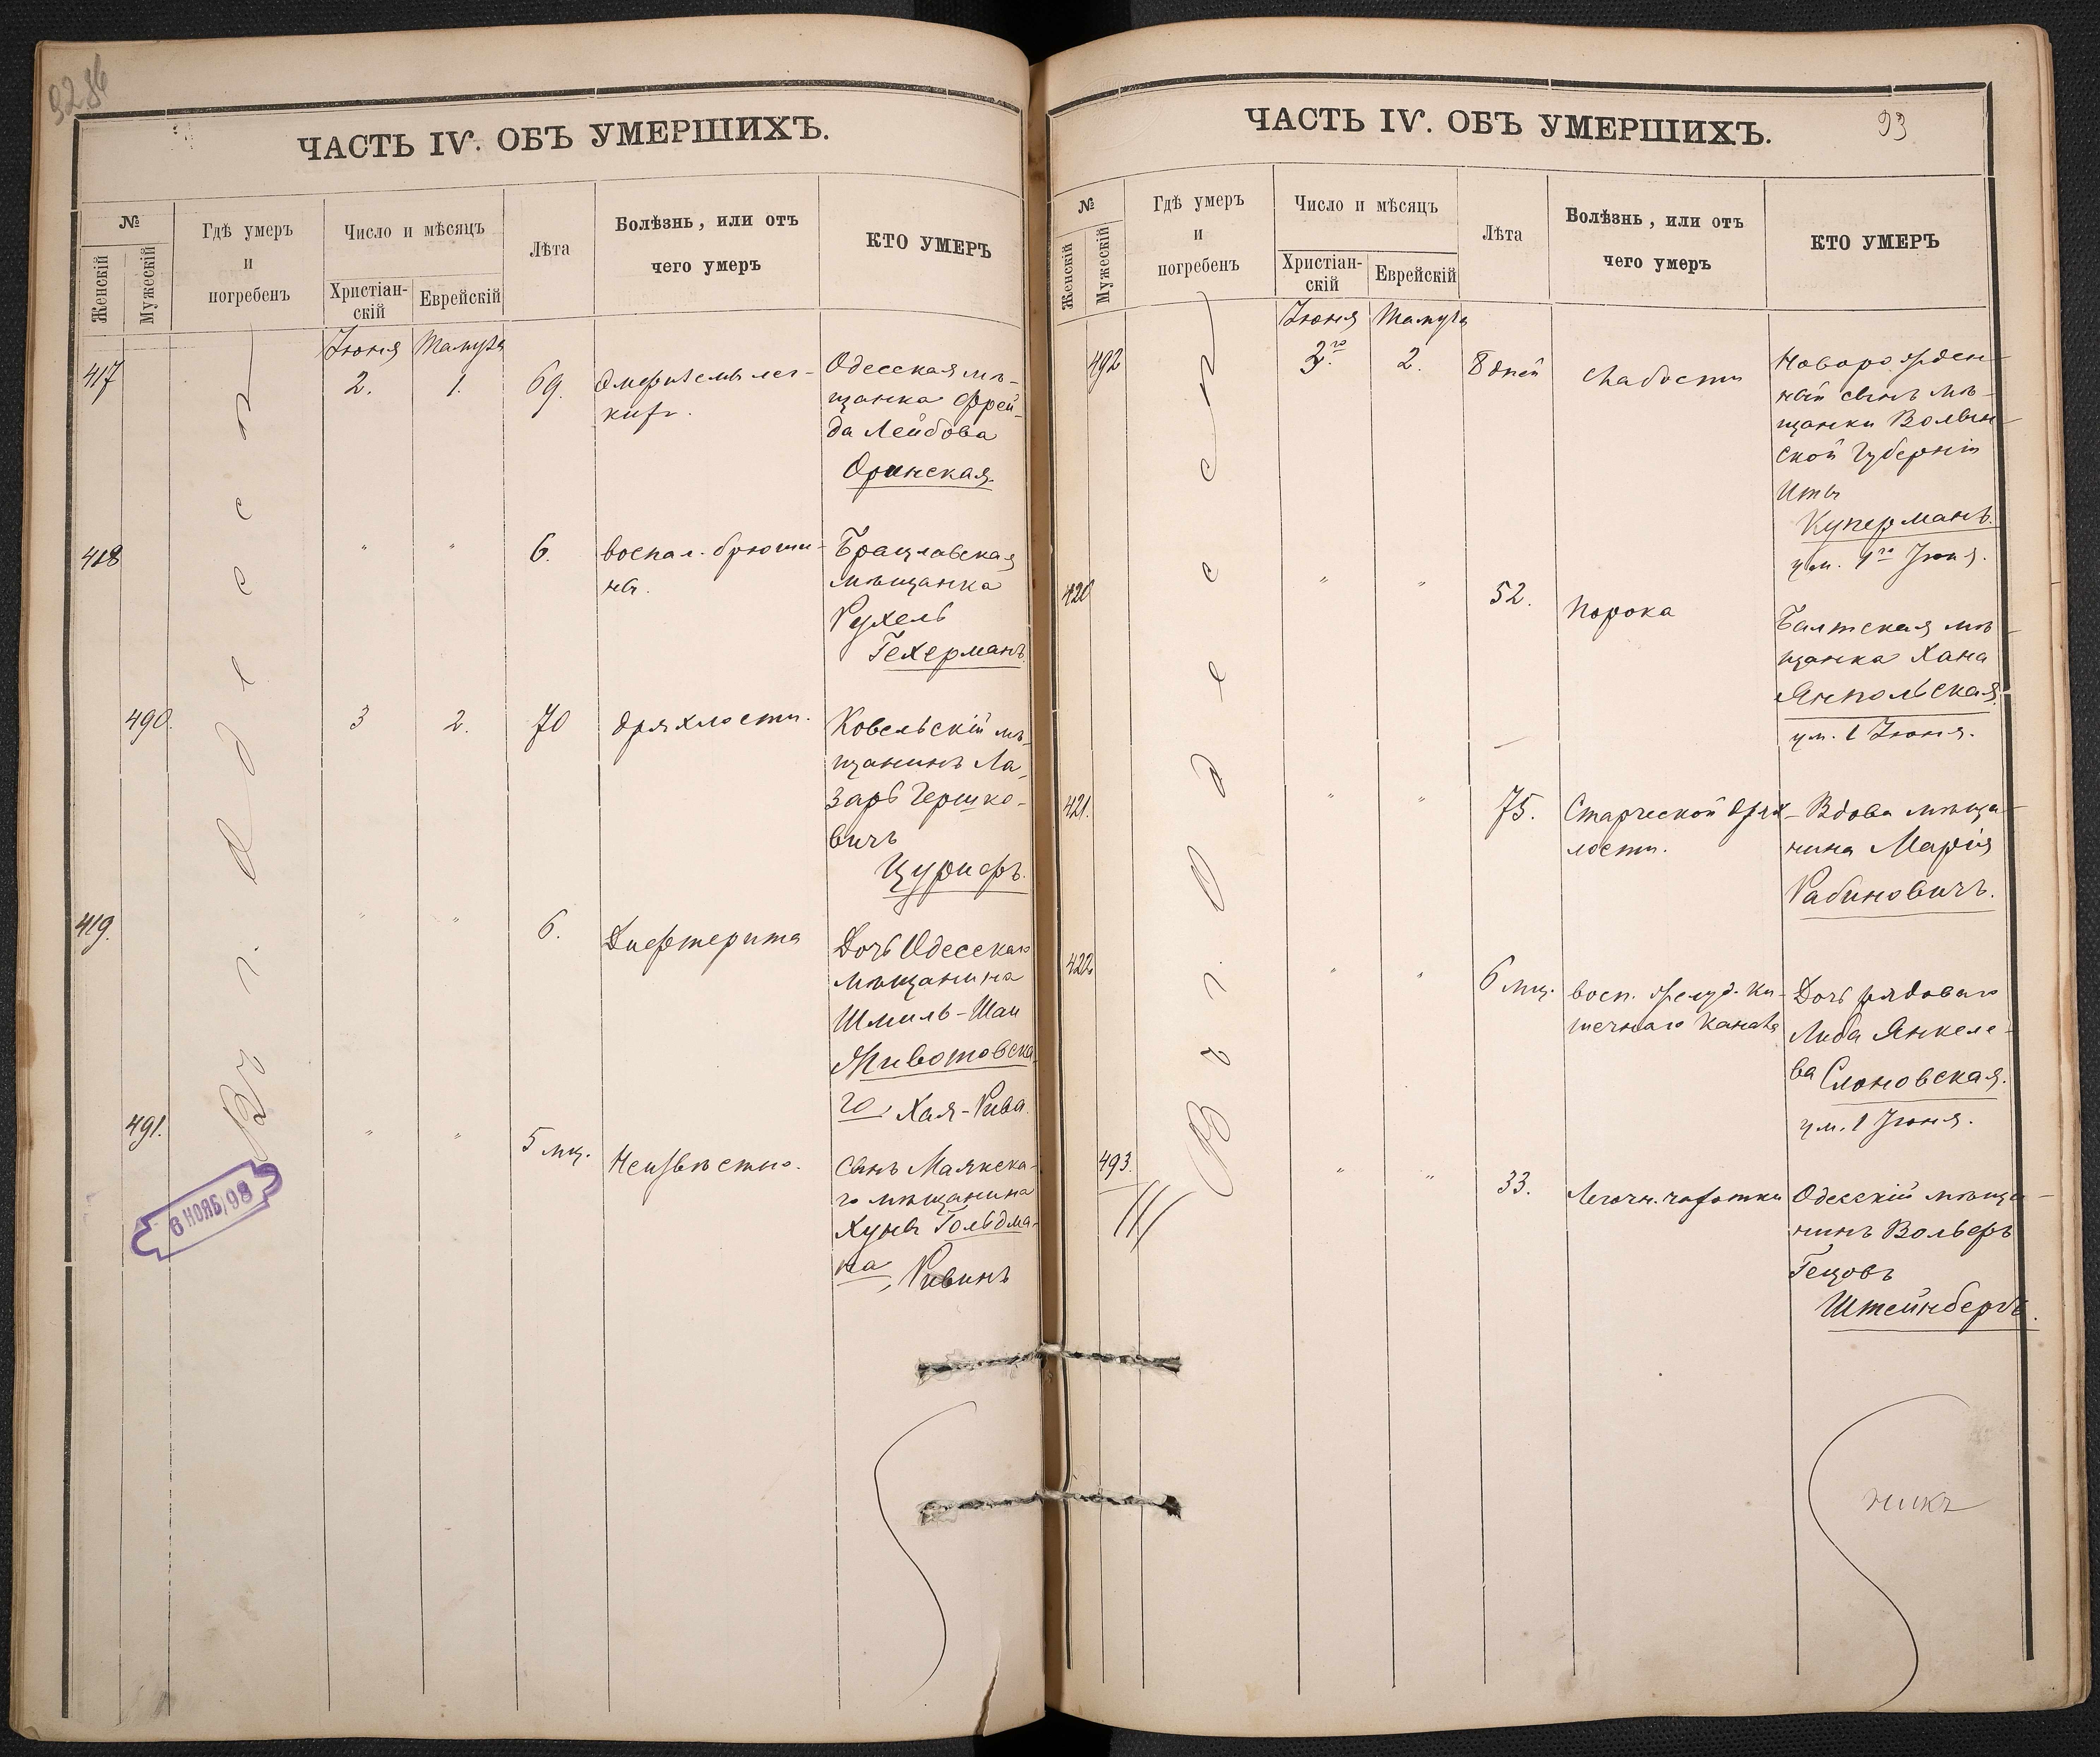 ЧАСТЬ IV. ОБЪ УМЕРШИХЪ.
№
Женскій
Мужескій
Гдѣ умеръ
и
погребенъ
Число и мѣсяцъ
Христіан-
скій
Еврейскій
Лѣта
Болѣзнь, или отъ
чего умеръ
КТО УМЕРЪ
Въ г. Одессѣ
Іюня Тамуза
417 2. 1. 69.
Одесская мѣ-
щанка Фрей-
да Лейбова
Оринская.
418 " " 6. воспал. брюши-
ны.
Брацлавская
мѣщанка
Рухель
Гехерманъ.
490. 3 2. 70 дряхлости.
Ковельскій мѣ-
щанинъ Ла-
зарь Гершко-
вичъ
Цурифъ.
419. " " 6. Дифтерита
Дочь Одесскаго
мѣщанина
Шмиль-Шаи
Животовска-
го, Хая-Рива.
491. " " 5 мц. Неизвѣстно.
Сынъ Маякска-
го мѣщанина
Хуны Гольдма-
на, Рувинъ
6 НОЯБ/98
ЧАСТЬ IV. ОБЪ УМЕРШИХЪ.
93
№
Женскій
Мужескій
Гдѣ умеръ
и
погребенъ
Число и мѣсяцъ
Христіан-
скій
Еврейскій
Лѣта
Болѣзнь, или отъ
чего умеръ
КТО УМЕРЪ
Въ г. Одессѣ
Іюня Тамуза
492 3.го 2. 8 дней слабости
Новорожден-
ный сынъ мѣ-
щанки Волын-
ской губерніи
Иты
Куперманъ.
ум. 1го Іюня.
420 " " 52. порока
Балтская мѣ-
щанка Хана
Янпольская.
ум. 1 Іюня.
421. " " 75. Старческой дрях-
лости.
Вдова мѣща-
нина Марія
Рабиновичъ.
422 " " 6 мц. восп. желуд. ки-
шечнаго канала
Дочь рядоваго
Либа Янкеле-
ва Слоновская.
ум. 1 Іюня.
493. " " 33. Легочн. чахотки
Одесскій мѣща-
нинъ Вольфъ
Гецовъ
Штейнбергъ.
никъ